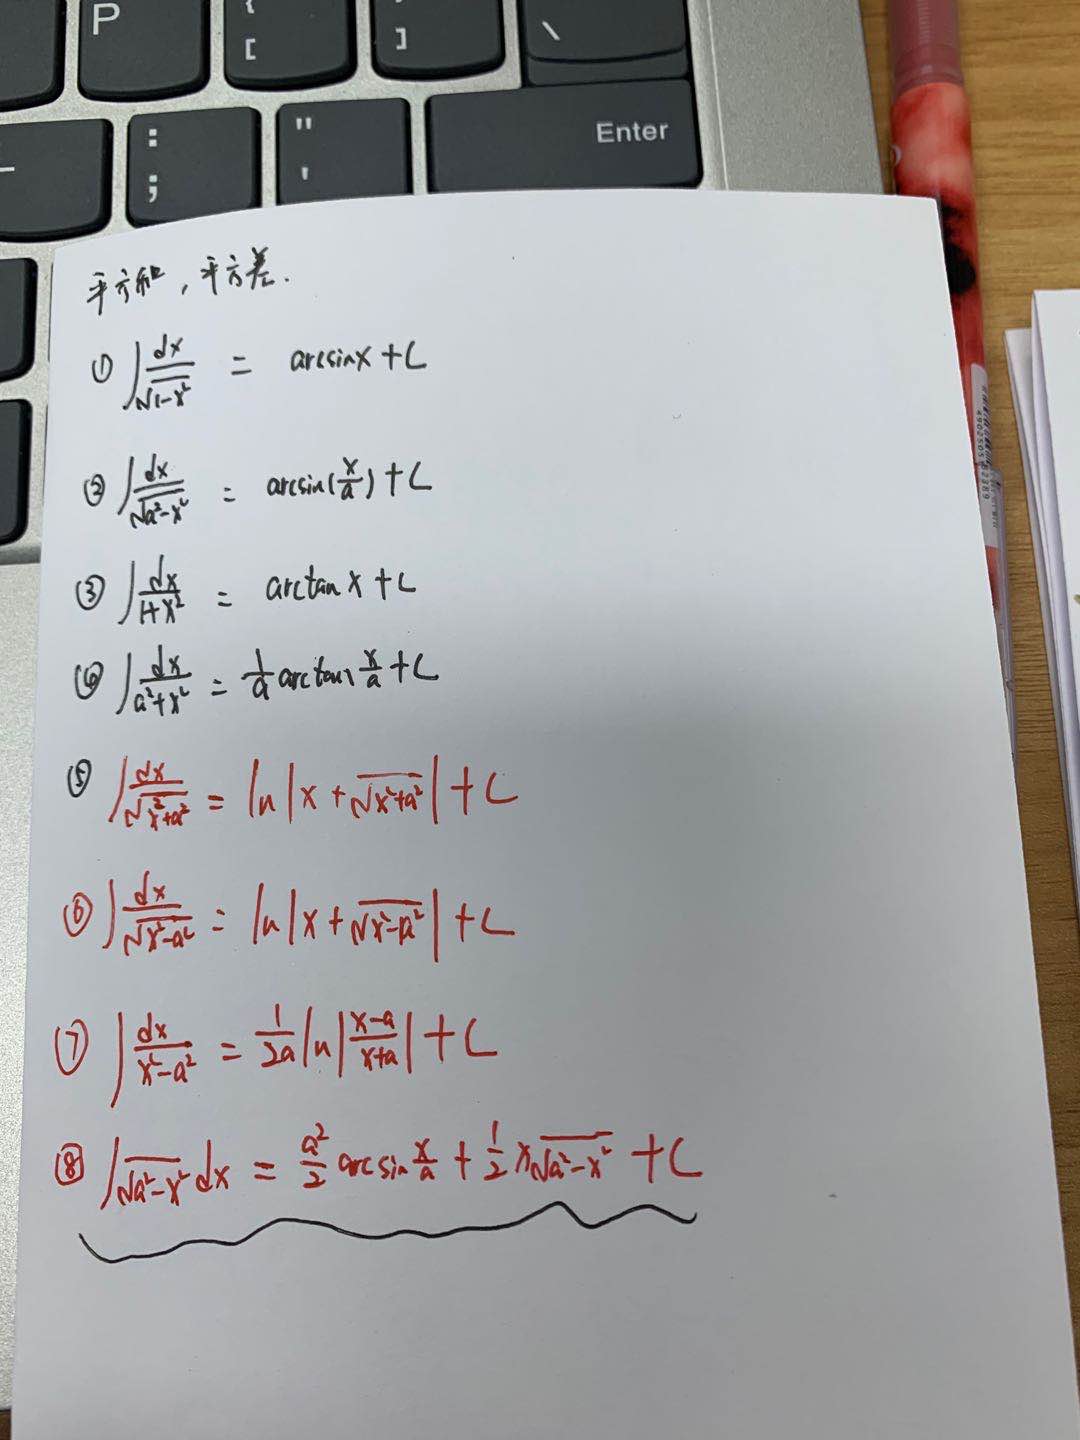 P
{
[
}
]
\
:
;
"
'
Enter
平方和，平方差.
① ∫dx/√(1-x²) = arcsinx+C
② ∫dx/√(a²-x²) = arcsin(x/a)+C
③ ∫dx/(1+x²) = arctan x+C
④ ∫dx/(a²+x²) = 1/a arctan x/a +C
⑤ ∫dx/√(x²+a²) = ln|x+√(x²+a²)|+C
⑥ ∫dx/√(x²-a²) = ln|x+√(x²-a²)|+C
⑦ ∫dx/(x²-a²) = 1/2a ln|(x-a)/(x+a)|+C
⑧ ∫√(a²-x²) dx = a²/2 arcsin x/a + 1/2 x√(a²-x²) +C